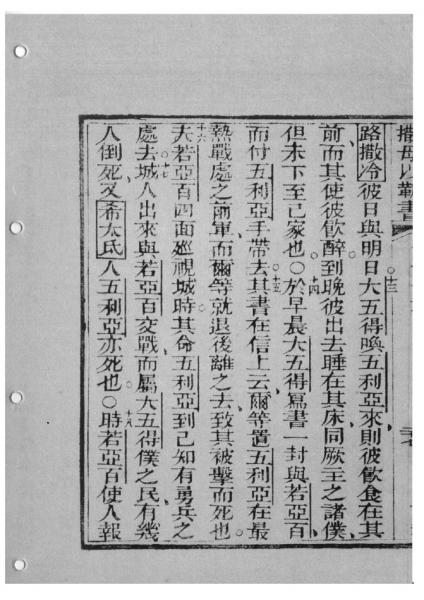 撒母以勒書
路撒冷彼日與明日○十三大五得喚五利亞來則彼飲食在其
前而其使彼飲醉到晚彼出去睡在其床同厥主之諸僕
但未下至己家也○十四於早晨大五得寫書一封與若亞百
而付五利亞手帶去○十五其書在信上云爾等置五利亞在最
熱戰處之前軍而爾等就退後離之去致其被擊而死也○
十六夫若亞百四面巡視城時其命五利亞到己知有勇兵之
處去○十七城人出來與若亞百交戰而屬大五得僕之民有幾
人倒死又希太氏人五利亞亦死也○十八時若亞百使人報